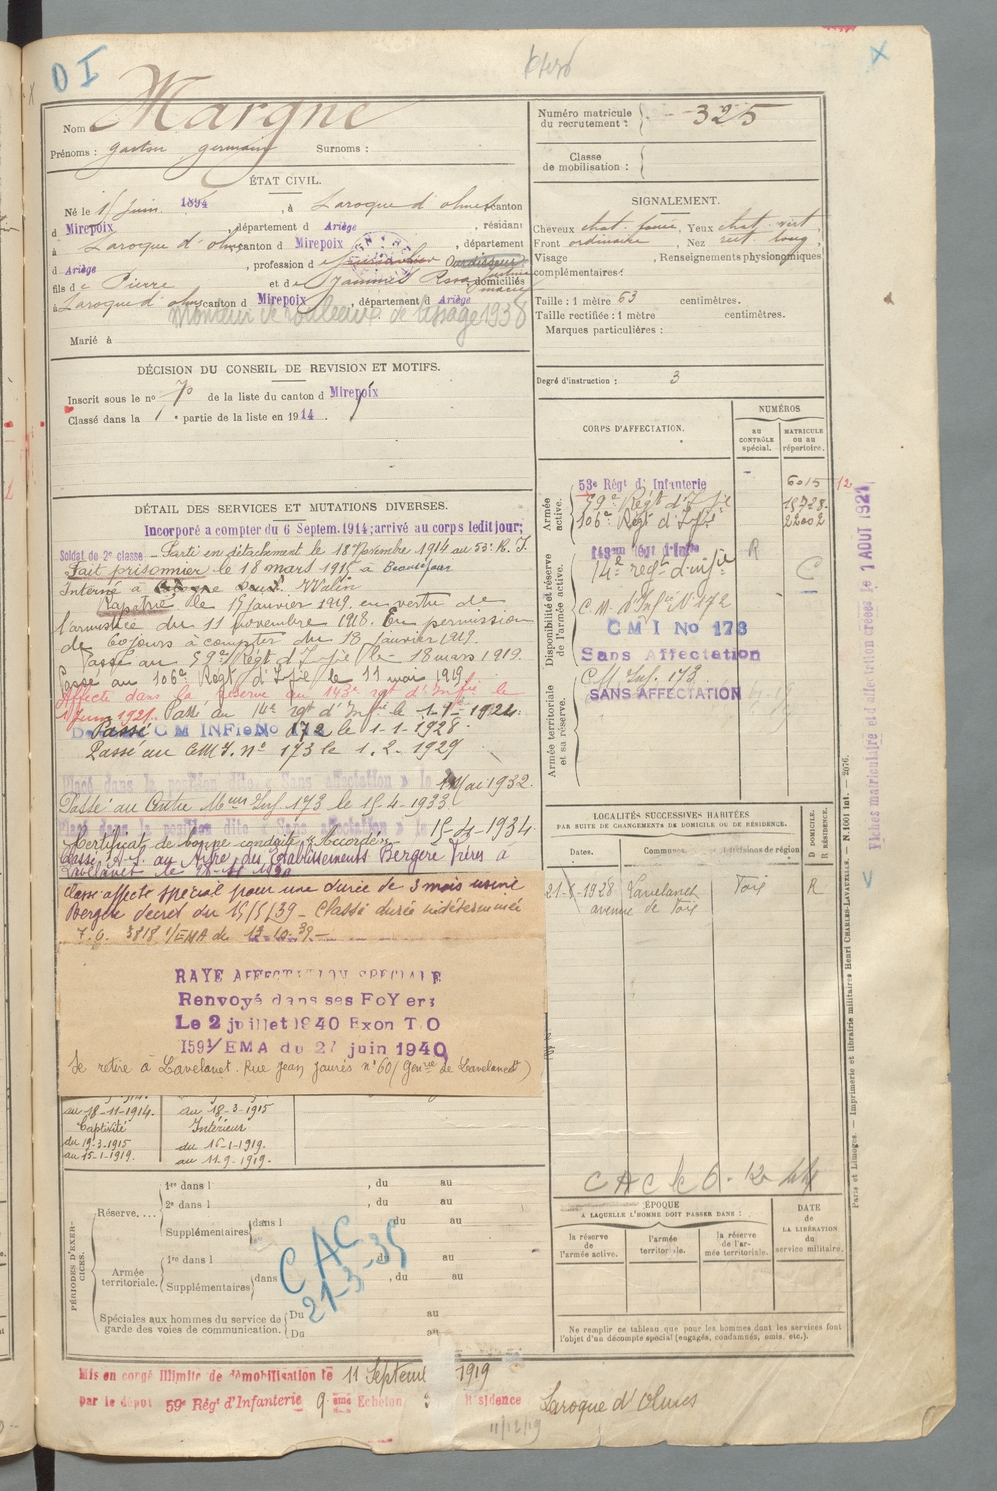 O I
Nom Margne
Prénoms : gaston germain Surnoms :
Numéro matricule
du recrutement : 325
Classe
de mobilisation :
ÉTAT CIVIL.
Né le 15 Juin 1894, à Laroque d'olmes, canton
d Mirepoix, département d Ariège, résidant
à Laroque d'olmes canton d Mirepoix, département
d Ariège, profession d
fils de Pierre et de Jammes domiciliés
à Laroque d'olmes canton d Mirepoix, département d Ariège
Monteur de rouleaux de tissage 1938
Marié à
SIGNALEMENT.
Cheveux chat. foncé, Yeux chat. vert,
Front ordinaire, Nez rect long,
Visage , Renseignements physionomiques
complémentaires :
Taille : 1 mètre 63 centimètres.
Taille rectifiée : 1 mètre centimètres.
Marques particulières :
Degré d'instruction : 3
DÉCISION DU CONSEIL DE REVISION ET MOTIFS.
Inscrit sous le nº 70 de la liste du canton d Mirepoix
Classé dans la 1e partie de la liste en 1914
DÉTAIL DES SERVICES ET MUTATIONS DIVERSES.
Incorporé a compter du 6 Septem. 1914; arrivé au corps ledit jour;
Soldat de 2e classe – Parti en détachement le 18 Novembre 1914 au 53e R. I.
Fait prisonnier le 18 mars 1915 à Beauséjour
Interné à Wahn
Rapatrié le 15 janvier 1919 en vertu de
l'armistice du 11 novembre 1918. En permission
de 60 jours à compter du 18 janvier 1919.
Passé au 59e Régt d'Infie le 18 mars 1919.
Passé au 106e Régt d'Infie le 11 mai 1919
Affecté dans la réserve au 143e rgt d'Infie le
1 juin 1921. Passé au 14e rgt d'Infie le 1-1-1924.
Passé C M INFie No 172 le 1-1-1928
Passé au CMI. nº 173 le 1.2-1929
Placé dans la position dite « Sans affectation » le 1 Mai 1932.
Passé au Centre Meur Inf. 173 le 15-4-1933
Placé dans la position dite « Sans affectation » le 15-4-1934.
Certificat de bonne conduite "Accordé"
Classé A. S. au titre des Etablissements Bergère Frères à
Lavelanet le
Classé affecté spécial pour une durée de 3 mois usine
Bergère décret du 15/5/39 – Classé durée indéterminée
T.O. 3818 1/EMA du 12-10-39 –
RAYE AFFECTATION SPECIALE
Renvoyé dans ses FoYers
Le 2 juillet 1940 Exon T.O
1591/EMA du 27 juin 1940
Se retire à Lavelanet. Rue Jean Jaurès nº 60 (Genrie de Lavelanet)
au 18-11-1914. au 18-3-1915
Captivité Intérieur
du 19-3-1915 du 16-1-1919.
au 15-1-1919. au 11-9-1919.
CORPS D'AFFECTATION.
NUMÉROS
AU CONTRÔLE spécial.
MATRICULE ou au répertoire.
Armée active.
53e Régt d'Infanterie 6015
59e Régt d'Infie 15728
106e Régt d'Infie 22002
Disponibilité et réserve de l'armée active.
143eme Régt d'Infie R
14e régt d'infie C
C. M. d'Infie Nº 172
C M I No 173
Sans Affectation
Armée territoriale et sa réserve.
CM. Inf. 173
SANS AFFECTATION
LOCALITÉS SUCCESSIVES HABITÉES
PAR SUITE DE CHANGEMENTS DE DOMICILE OU DE RÉSIDENCE.
Dates. Communes. Subdivisions de région D DOMICILE. R RÉSIDENCE.
1928 Lavelanet Foix R
avenue de Foix
CAC le 6-12-44
ÉPOQUE
A LAQUELLE L'HOMME DOIT PASSER DANS :
la réserve de l'armée active.
l'armée territoriale.
la réserve de l'armée territoriale.
DATE DE LA LIBÉRATION du service militaire.
Ne remplir ce tableau que pour les hommes dont les services font
l'objet d'un décompte spécial (engagés, condamnés, omis, etc.).
PÉRIODES D'EXERCICES.
Réserve....
1re dans l , du au
2e dans l , du au
Supplémentaires dans l , du au
Armée territoriale.
1re dans l , du au
Supplémentaires dans , du au
Spéciales aux hommes du service de
garde des voies de communication.
Du au
Du au
CAC
21-3-35
Mis en congé illimité de démobilisation le 11 Septembre 1919
par le dépôt 59e Régt d'Infanterie 9 ème Echelon Résidence Laroque d'Olmes
11/12/19
Fiches matriculaire et d'affectation créées le 1 AOUT 1921
Paris et Limoges. — Imprimerie et librairie militaires Henri CHARLES-LAVAUZELLE. — N. 1001 int. — 2076.